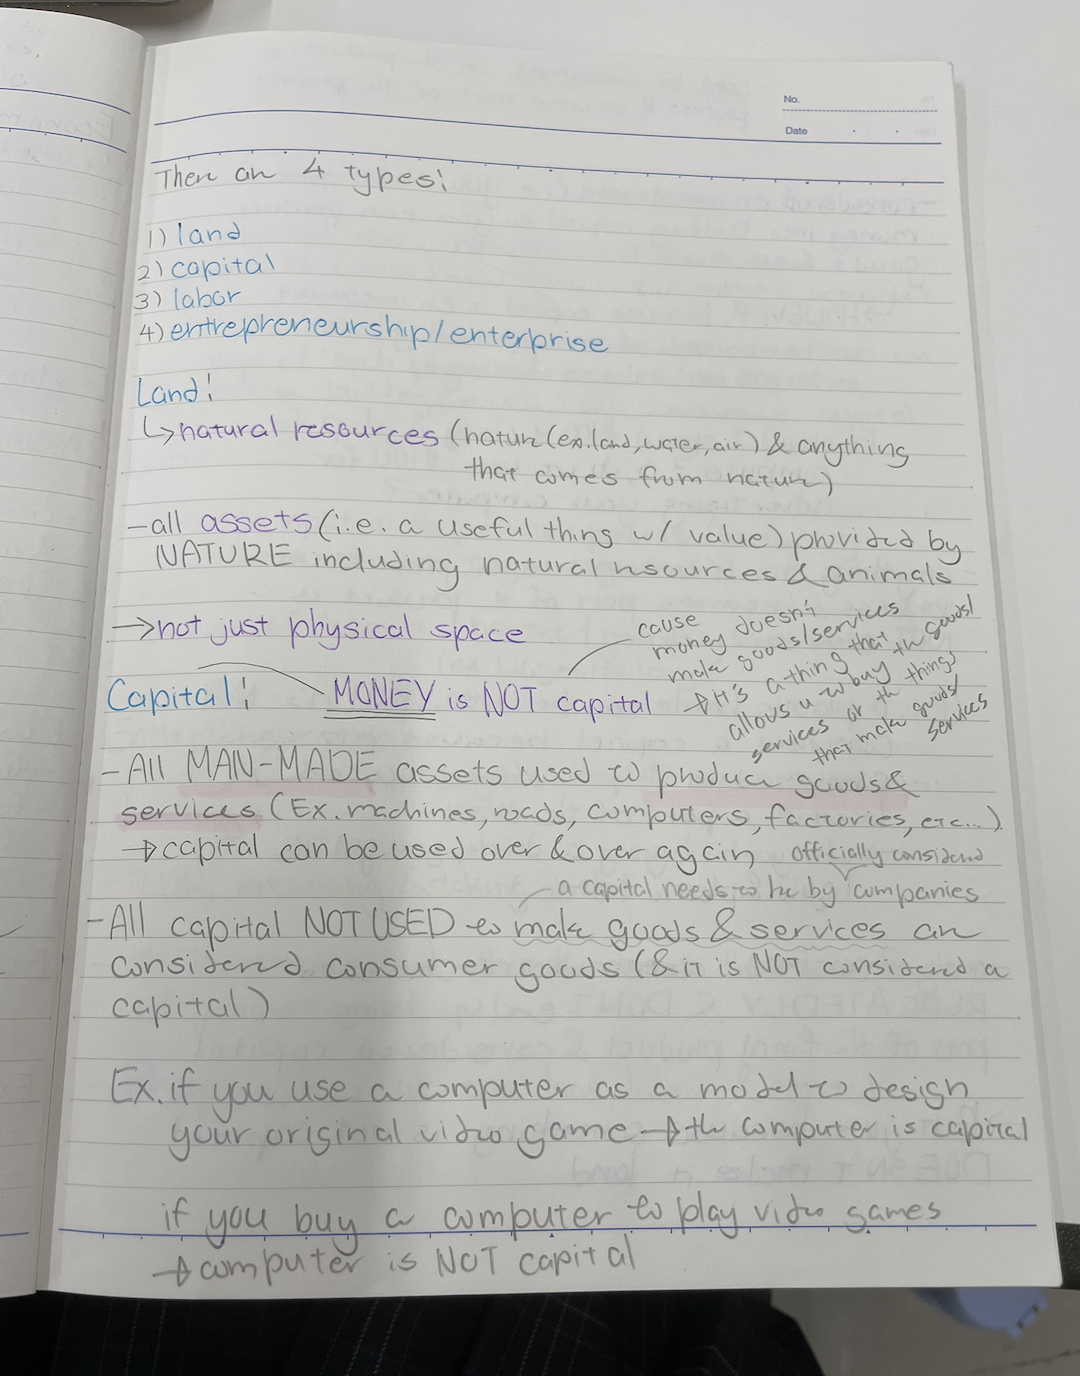 No.
Date
There are 4 types:
1) land
2) capital
3) labor
4) entrepreneurship/enterprise
Land:
↳ natural resources (nature (ex. land, water, air) & anything
that comes from nature)
- all assets (i.e. a useful thing w/ value) provided by
NATURE including natural resources & animals
→ not just physical space
cause
money doesn't
make goods/services
→ it's a thing that
allows u to buy the goods/
services or the things
that make goods/
services
Capital: MONEY is NOT capital
- All MAN-MADE assets used to produce goods &
services (Ex. machines, roads, computers, factories, etc...)
→ capital can be used over & over again
officially considered
a capital needs to be by companies
- All capital NOT USED to make goods & services are
considered consumer goods (& it is NOT considered a
capital)
Ex. if you use a computer as a model to design
your original video game → the computer is capital
if you buy a computer to play video games
→ computer is NOT capital